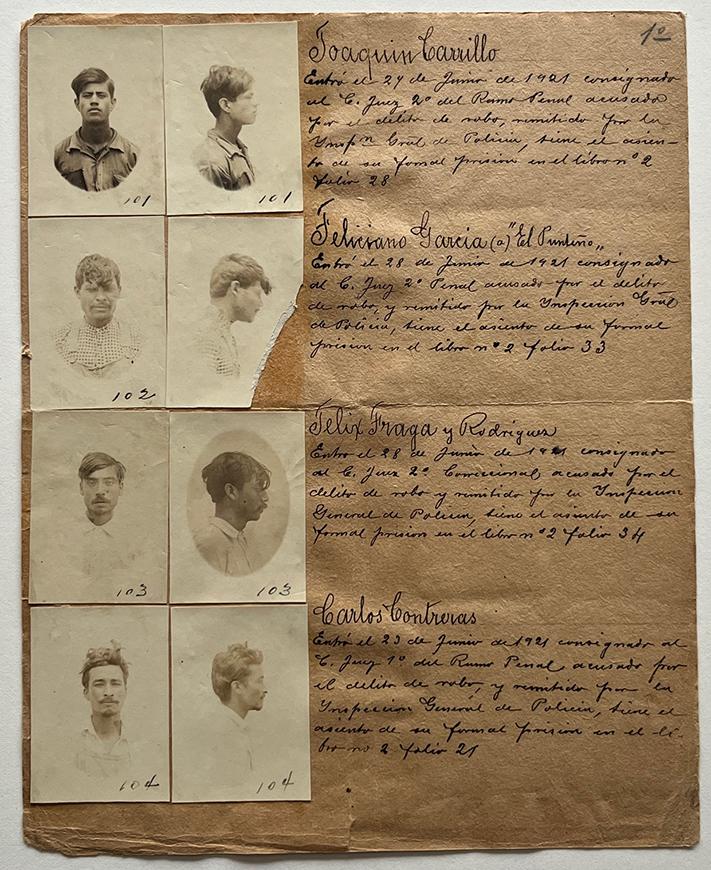 1º
Joaquin Carrillo
Entró el 24 de Junio de 1921 consignado
al C. Juez 2º del Ramo Penal acusado
por el delito de robo, remitido por la
Inspn Gral de Policia, tiene el asien-
to de su formal prision en el libro nº 2
folio 28
101
101
Feliciano Garcia (a) "El Punteño"
Entró el 28 de Junio de 1921 consignado
al C. Juez 2º Penal acusado por el delito
de robo, y remitido por la Inspeccion Gral
de Policia, tiene el asiento de su formal
prision en el libro nº 2 folio 33
102
Felix Fraga y Rodríguez
Entro el 28 de Junio de 1921 consignado
al C. Juez 2º Correccional acusado por el
delito de robo y remitido por la Inspeccion
General de Policia, tiene el asiento de su
formal prision en el libro nº 2 folio 34
103
103
Carlos Contreras
Entró el 23 de Junio de 1921 consignado al
C. Juez 1º del Ramo Penal acusado por
el delito de robo, y remitido por la
Inspeccion General de Policia, tiene el
asiento de su formal prision en el li-
bro no 2 folio 21
104
104